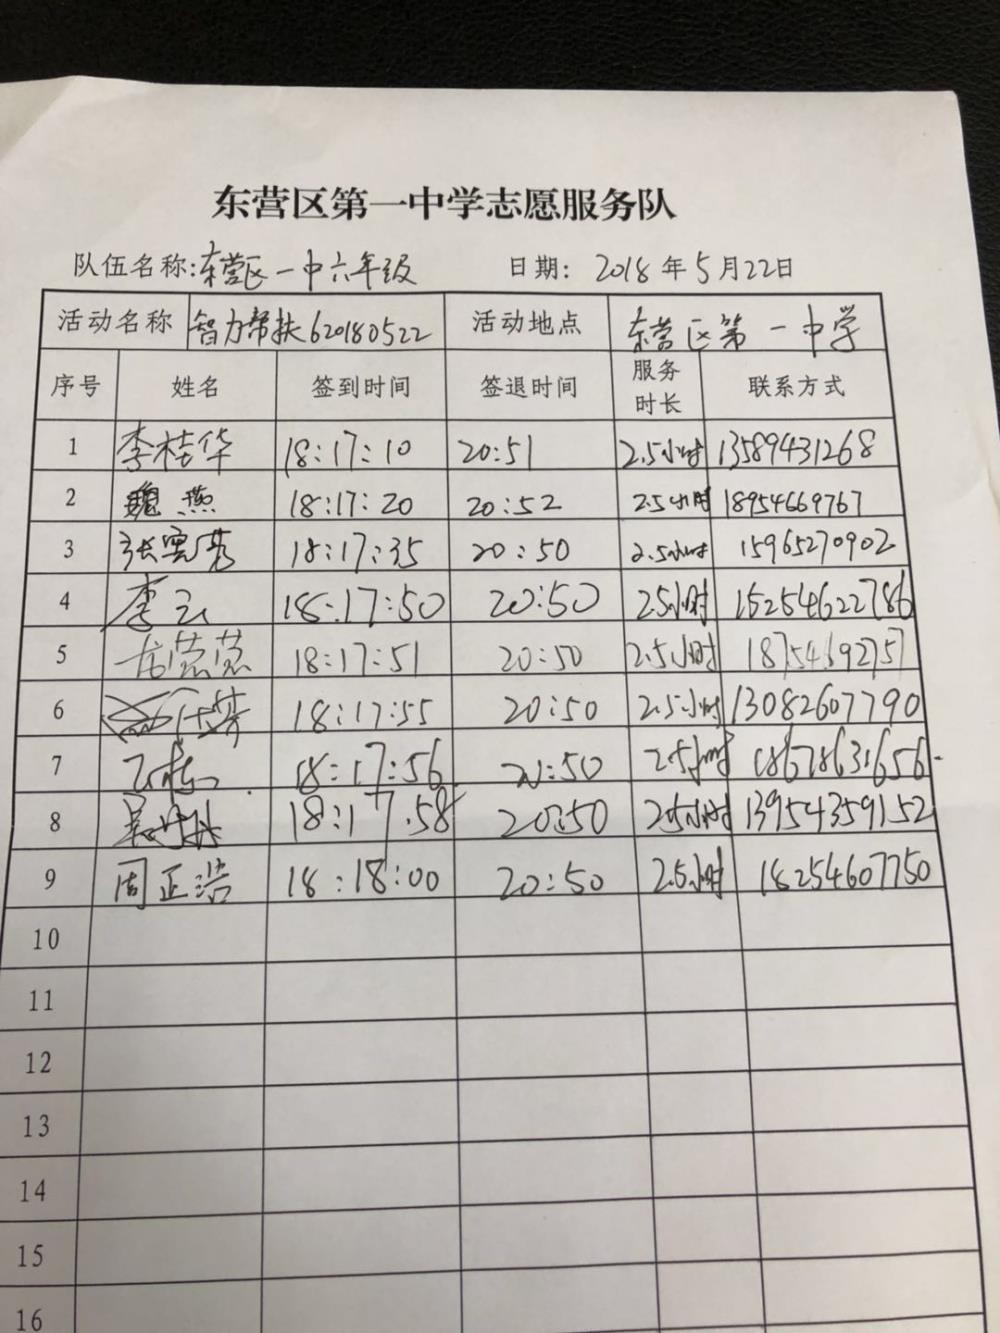 东营区第一中学志愿服务队
队伍名称:东营区一中六年级 日期: 2018年5月22日
活动名称 智力帮扶620180522 活动地点 东营区第一中学
序号 姓名 签到时间 签退时间 服务时长 联系方式
1 李桂华 18:17:10 20:51 2.5小时 13589431268
2 魏燕 18:17:20 20:52 2.5小时 18954669767
3 张雲秀 18:17:35 20:50 2.5小时 15965270902
4 李云 18:17:50 20:50 2.5小时 15254622786
5 18:17:51 20:50 2.5小时 18754692757
6 18:17:55 20:50 2.5小时 13082607790
7 18:17:56 20:50 2.5小时 18678631656
8 18:17:58 20:50 2.5小时 13954359152
9 周正浩 18:18:00 20:50 2.5小时 18254607750
10
11
12
13
14
15
16